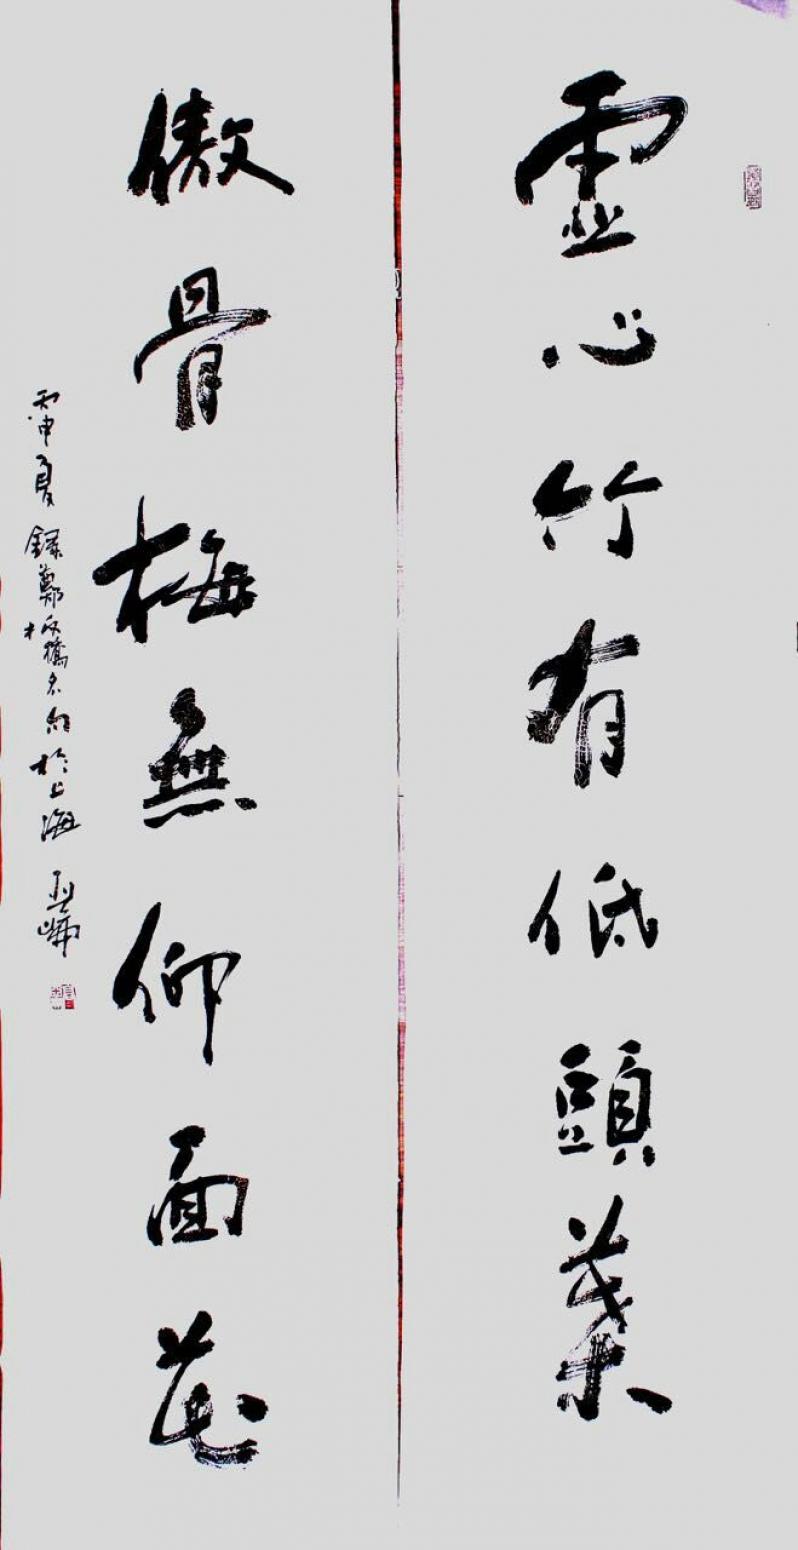 靈心竹有低頭葉
傲骨梅無仰面花
丙申夏錄鄭板橋名句於上海